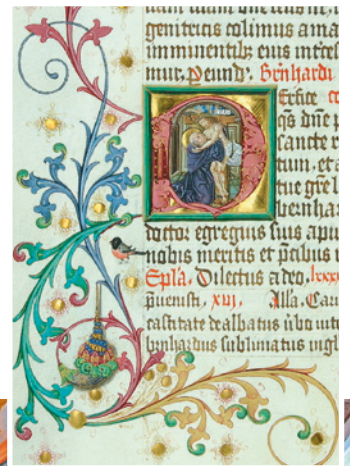 genitricis colimus ama
imminentib; eius intces
mur. P eund'. Brnhardi
Erfice
qs dne p
sancte r
tum. et a
tue gre l
bernha
doctor egregius suis apu
nobis meritis et pcibus
Spla. Dilectus a deo. lxxx
puenisti. xiij. Alla. Car
castitate dealbatus
brnhardus sublimatus in gl